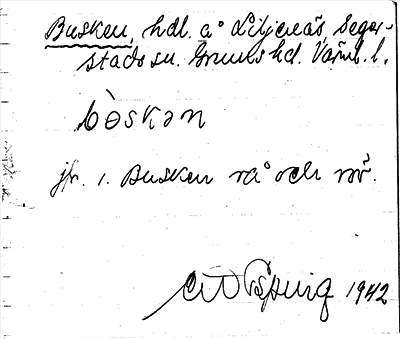 Busken, hdl. å Liljenäs Seger-
stads sn. Grums hd. Värml. l.
bòskən
jfr. 1. Busken rå och rör.
1942